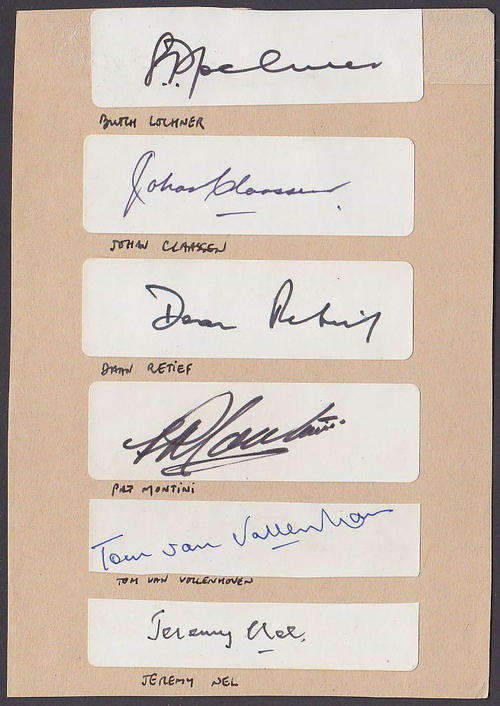 BUTCH LOCHNER
Johan Claassen.
JOHAN CLAASSEN
Daan Retief
DAAN RETIEF
PAT MONTINI
Tom van Vollenhoven
TOM VAN VOLLENHOVEN
Jeremy Nel.
JEREMY NEL